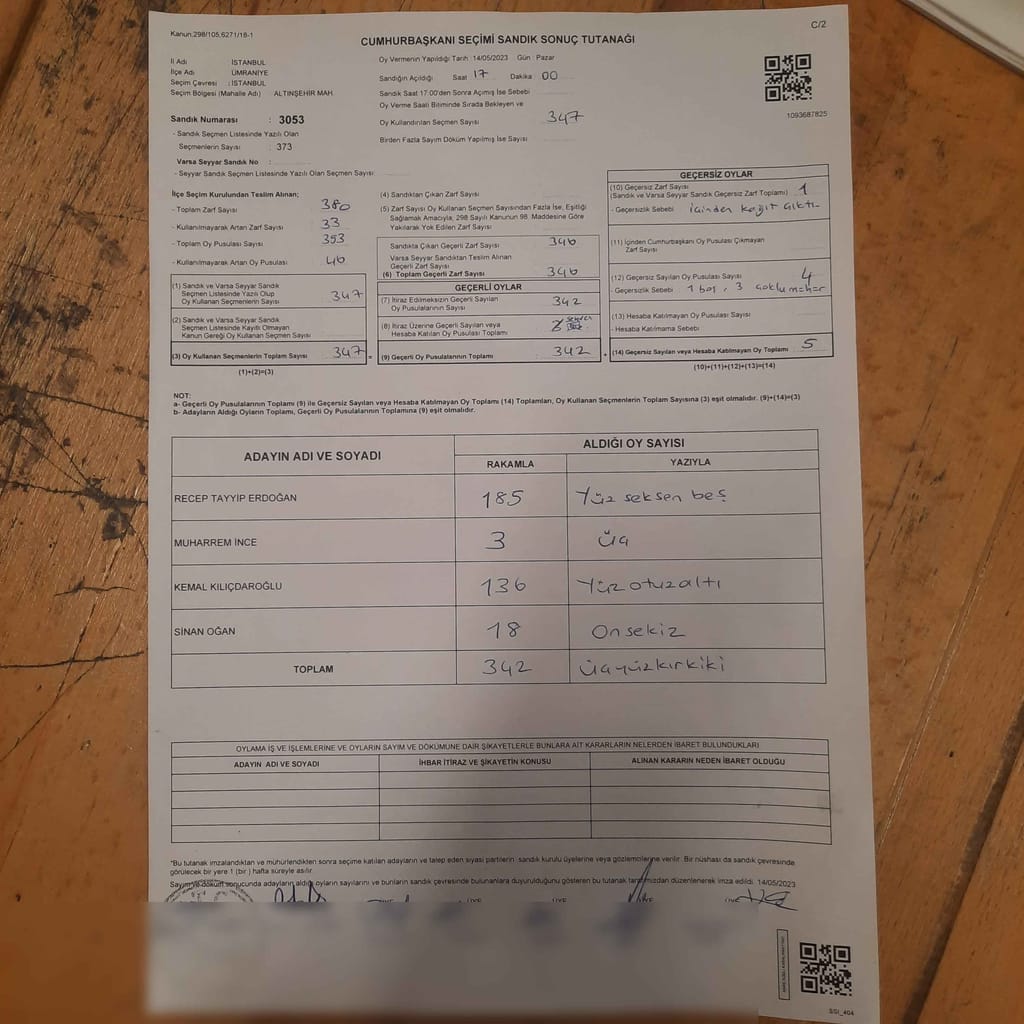 Kanun:298/105,6271/18-1
C/2
CUMHURBAŞKANI SEÇİMİ SANDIK SONUÇ TUTANAĞI
İl Adı : İSTANBUL
İlçe Adı : ÜMRANİYE
Seçim Çevresi : İSTANBUL
Seçim Bölgesi (Mahalle Adı) : ALTINŞEHİR MAH.
Oy Vermenin Yapıldığı Tarih : 14/05/2023 Gün : Pazar
Sandığın Açıldığı Saat 17 Dakika 00
Sandık Saat 17:00'den Sonra Açımış İse Sebebi
Oy Verme Saati Bitiminde Sırada Bekleyen ve
Oy Kullandırılan Seçmen Sayısı 347
Birden Fazla Sayım Döküm Yapılmış İse Sayısı
1093687825
Sandık Numarası : 3053
- Sandık Seçmen Listesinde Yazılı Olan
Seçmenlerin Sayısı : 373
Varsa Seyyar Sandık No :
- Seyyar Sandık Seçmen Listesinde Yazılı Olan Seçmen Sayısı:
İlçe Seçim Kurulundan Teslim Alınan;
- Toplam Zarf Sayısı 380
- Kullanılmayarak Artan Zarf Sayısı 33
- Toplam Oy Pusulası Sayısı 393
- Kullanılmayarak Artan Oy Pusulası 46
(1) Sandık ve Varsa Seyyar Sandık
Seçmen Listesinde Yazılı Olup
Oy Kullanan Seçmenlerin Sayısı 347
(2) Sandık ve Varsa Seyyar Sandık
Seçmen Listesinde Kayıtlı Olmayan
Kanun Gereği Oy Kullanan Seçmen Sayısı
(3) Oy Kullanan Seçmenlerin Toplam Sayısı 347 =
(1)+(2)=(3)
(4) Sandıktan Çıkan Zarf Sayısı
(5) Zarf Sayısı Oy Kullanan Seçmen Sayısından Fazla İse, Eşitliği
Sağlamak Amacıyla, 298 Sayılı Kanunun 98. Maddesine Göre
Yakılarak Yok Edilen Zarf Sayısı
Sandıkta Çıkan Geçerli Zarf Sayısı 346
Varsa Seyyar Sandıktan Teslim Alınan
Geçerli Zarf Sayısı
(6) Toplam Geçerli Zarf Sayısı 346
GEÇERLİ OYLAR
(7) İtiraz Edilmeksizin Geçerli Sayılan
Oy Pusulalarının Sayısı 342
(8) İtiraz Üzerine Geçerli Sayılan veya
Hesaba Katılan Oy Pusulası Toplamı
(9) Geçerli Oy Pusulalarının Toplamı 342 +
GEÇERSİZ OYLAR
(10) Geçersiz Zarf Sayısı
(Sandık ve Varsa Seyyar Sandık Geçersiz Zarf Toplamı) 1
- Geçersizlik Sebebi içinden kağıt çıktı
(11) İçinden Cumhurbaşkanı Oy Pusulası Çıkmayan
Zarf Sayısı
(12) Geçersiz Sayılan Oy Pusulası Sayısı 4
- Geçersizlik Sebebi 1 boş, 3 çoklu mühür
(13) Hesaba Katılmayan Oy Pusulası Sayısı
- Hesaba Katılmama Sebebi
(14) Geçersiz Sayılan veya Hesaba Katılmayan Oy Toplamı 5
(10)+(11)+(12)+(13)=(14)
NOT:
a- Geçerli Oy Pusulalarının Toplamı (9) ile Geçersiz Sayılan veya Hesaba Katılmayan Oy Toplamı (14) Toplamları, Oy Kullanan Seçmenlerin Toplam Sayısına (3) eşit olmalıdır. (9)+(14)=(3)
b- Adayların Aldığı Oyların Toplamı, Geçerli Oy Pusulalarının Toplamına (9) eşit olmalıdır.
ADAYIN ADI VE SOYADI
ALDIĞI OY SAYISI
RAKAMLA YAZIYLA
RECEP TAYYİP ERDOĞAN 185 Yüz seksen beş
MUHARREM İNCE 3 Üç
KEMAL KILIÇDAROĞLU 136 Yüzotuzaltı
SİNAN OĞAN 18 Onsekiz
TOPLAM 342 Üçyüzkırkiki
OYLAMA İŞ VE İŞLEMLERİNE VE OYLARIN SAYIM VE DÖKÜMÜNE DAİR ŞİKAYETLERLE BUNLARA AİT KARARLARIN NELERDEN İBARET BULUNDUKLARI
ADAYIN ADI VE SOYADI İHBAR İTİRAZ VE ŞİKAYETİN KONUSU ALINAN KARARIN NEDEN İBARET OLDUĞU
*Bu tutanak imzalandıktan ve mühürlendikten sonra seçime katılan adayların ve talep eden siyasi partilerin sandık kurulu üyelerine veya gözlemcilerine verilir. Bir nüshası da sandık çevresinde
görülecek bir yere 1 (bir) hafta süreyle asılır.
Sayım ve döküm sonucunda adayların aldığı oyların sayılarını ve bunların sandık çevresinde bulunanlara duyurulduğunu gösteren bu tutanak tarafımızdan düzenlenerek imza edildi. 14/05/2023
ÜYE ÜYE ÜYE ÜYE
SSI_404